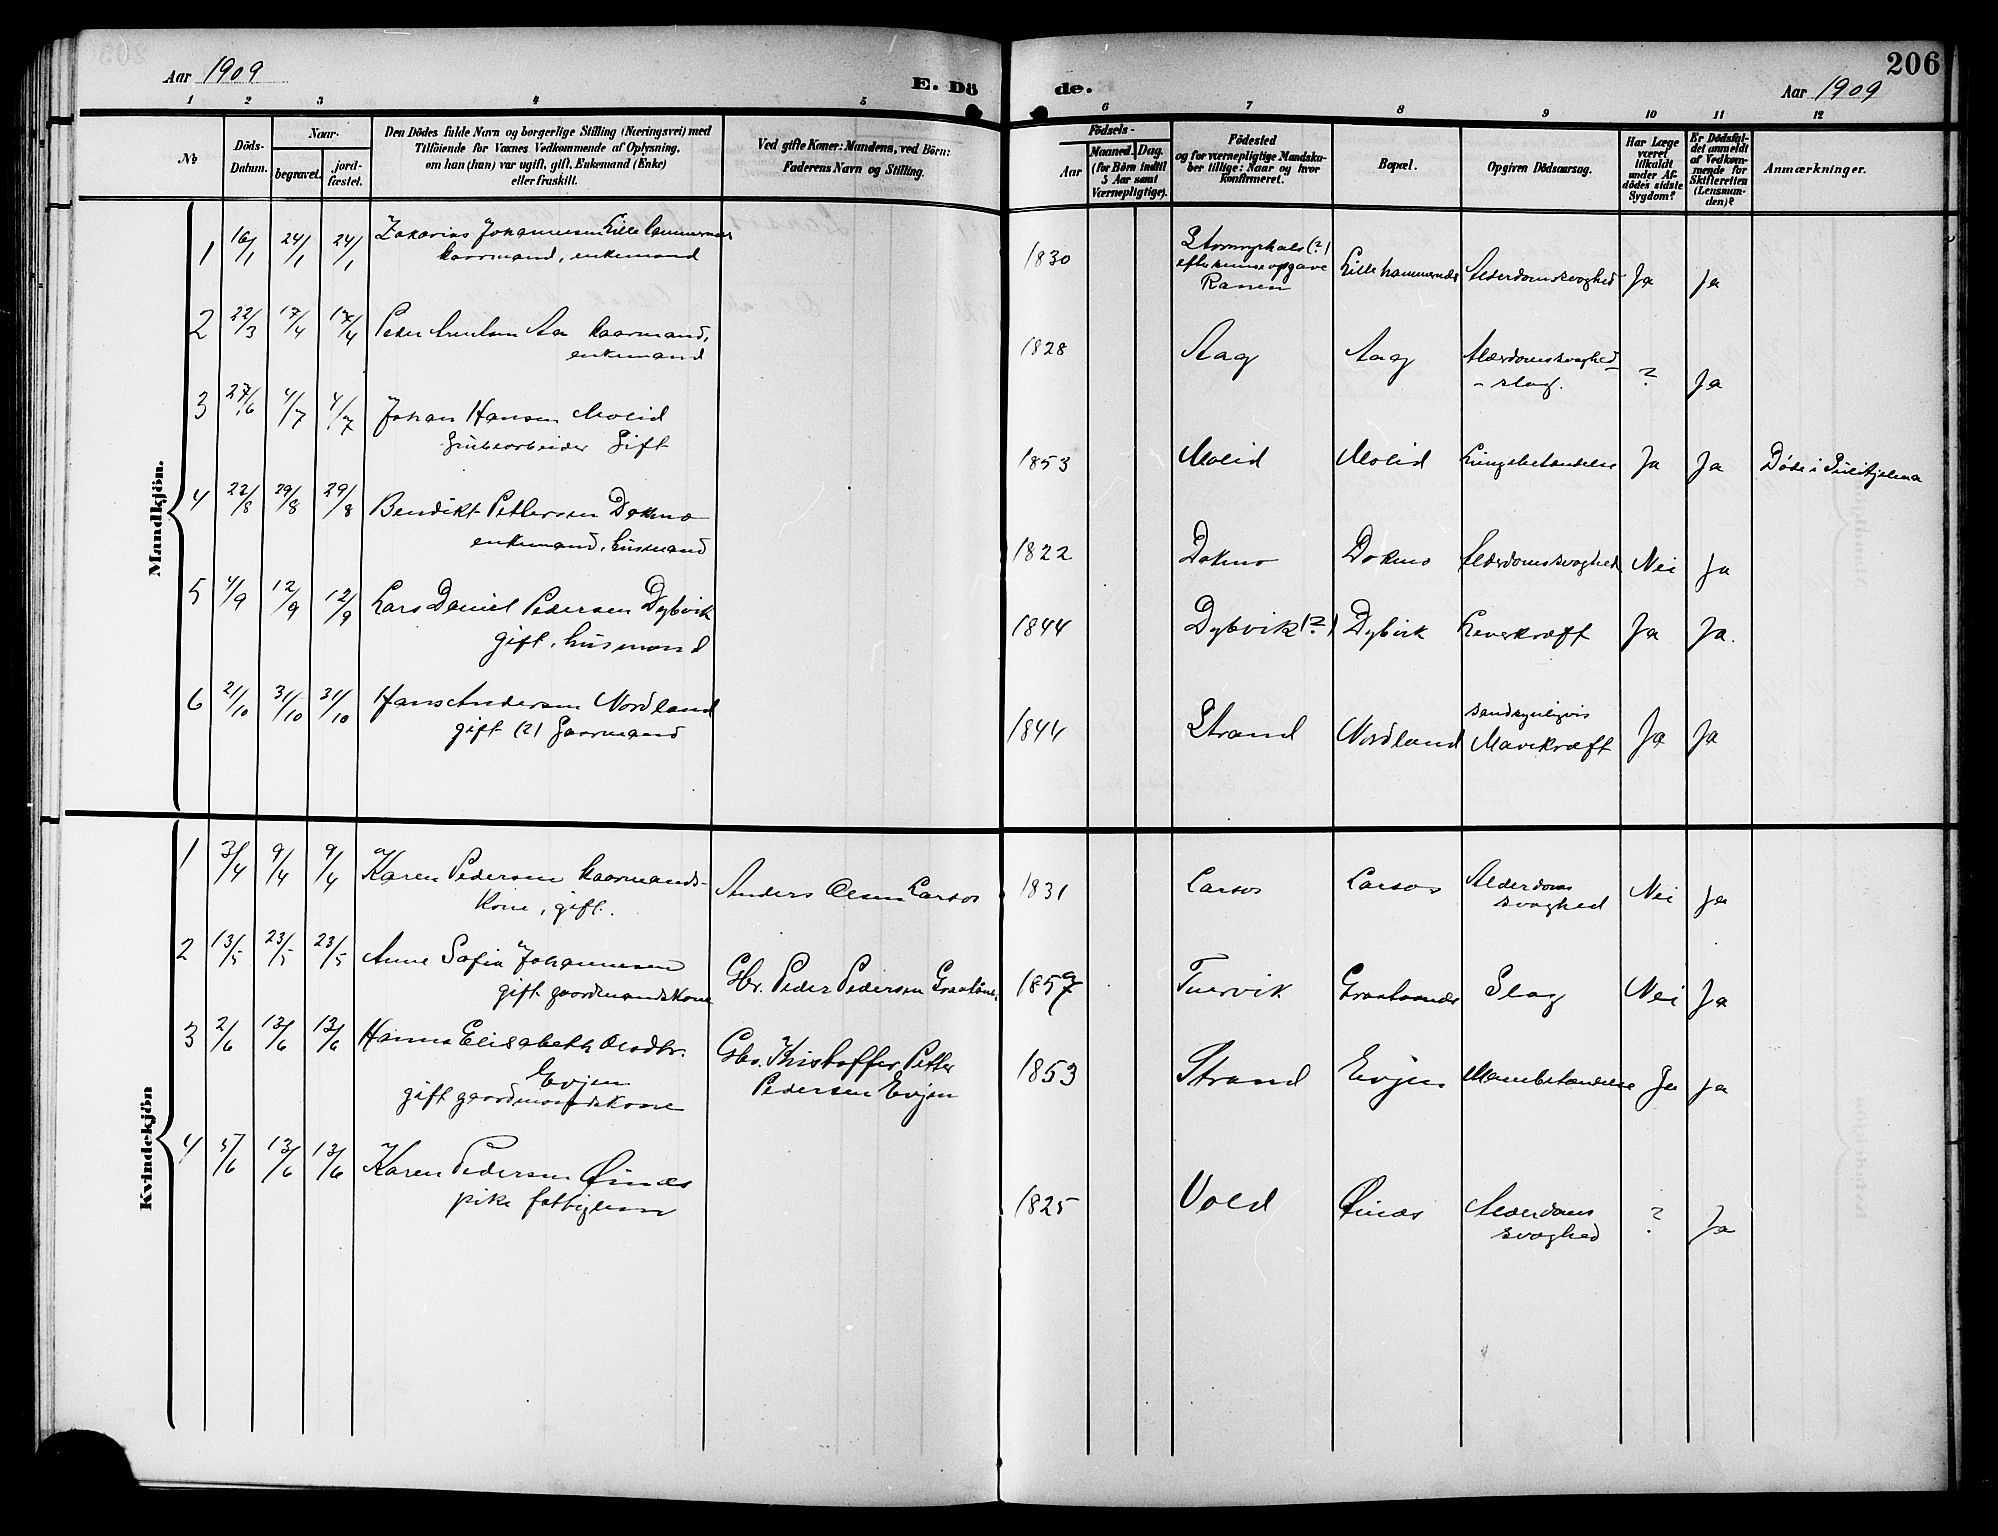 206
Aar 1909
E. Dö
de.
Aar 1909
1 2 3 4 5
6 7 8 9 10 11 12
No
Döds-
Datum.
Naar-
begravet.
jord-
fæstet.
Den Dödes fulde Navn og borgerlige Stilling (Næringsvei) med
Tilföiende for Voxnes Vedkommende af Oplysning,
om han (hun) var ugift, gift, Enkemand (Enke)
eller fraskilt.
Ved gifte Koner: Mandens, ved Börn:
Faderens Navn og Stilling.
Födsels-
Aar
Maaned. Dag.
(for Börn indtil
5 Aar samt
Værnepligtige).
Födested
og for værnepligtige Mandska-
ber tillige: Naar og hvor
konfirmeret.
Bopæl.
Opgiven Dödsaarsag.
Har Læge
været
tilkaldt
under Af-
dödes sidste
Sygdom?
Er Dödsfal-
det anmeldt
af Vedkom-
mende for
Skifteretten
(Lensman-
den)?
Anmærkninger.
Mandkjön.
1 16/1 24/1 24/1 Zakarias Johannesen Lillehammernæs
kaarmand, enkemand
1830 (?)
efter opgave
Ranen
Lillehammernæs Alderdomssvaghed Ja Ja
2 22/3 17/4 17/4 Peder Aa kaarmand,
enkemand
1828 Aag Aag Alderdomssvaghed
- slag. ? Ja
3 27/6 4/7 4/7 Johan Hansen Molid
Grubearbeider Gift
1853 Molid Molid Lungebetændelse Ja Ja Døde i Sulitjelma
4 22/8 29/8 29/8 Bendikt Pettersen Dokmo
enkemand, husmand
1822 Dokmo Dokmo Alderdomssvaghed Nei Ja
5 4/9 12/9 12/9 Lars Daniel Pedersen Dybvik
gift, husmand
1844 Dybvik (?) Dybvik Leverkræft Ja Ja.
6 21/10 31/10 31/10 Hans Andersen Nordland
gift (2) Gaarmand
1844 Strand Nordland sandsynligvis
Mavekræft Ja Ja
Kvindekjön
1 3/4 9/4 9/4 Karen Pedersen kaarmands-
kone, gift.
Anders Olsen Larsos
1831 Larsos Larsos Alderdoms
svaghed Nei Ja
2 13/5 23/5 23/5 Anne Sofia Johannesen
gift gaardmandskone
Gbr. Peder Pedersen
1857 Nei Ja
Slag
3 2/6 13/6 13/6 Hanna Elisabeth
Evjen
gift gaardmandskone
Gbr. Kristoffer Petter
Pedersen Evjen
1853 Strand Evjen Mavebetændelse Ja Ja
4 5/6 13/6 13/6 Karen Pedersen Øinæs
pike fattiglem
1825 Vold Øinæs Alderdoms
svaghed ? Ja